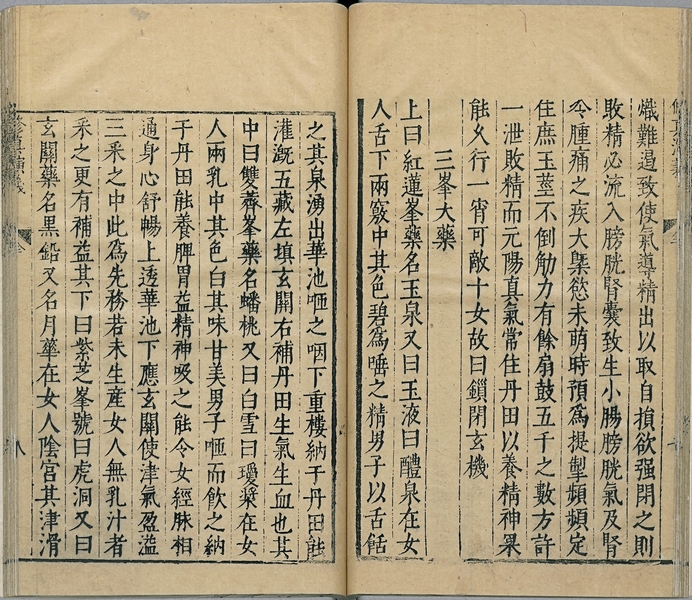 熾難遏致使氣導精出以取自損欲强閉之則
敗精必流入膀胱腎囊致生小腸膀胱氣及腎
冷腫痛之疾大槩慾未萌時預爲提掣頻頻定
住庶玉莖不倒觔力有餘扇鼓五千之數方許
一泄敗精而元陽真氣常住丹田以養精神果
能久行一宵可敵十女故曰鎖閉玄機
三峯大藥
上曰紅蓮峯藥名玉泉又曰玉液曰醴泉在女
人舌下兩竅中其色碧爲唾之精男子以舌餂
之其泉湧出華池咂之咽下重樓納于丹田能
灌溉五藏左填玄關右補丹田生氣生血也其
中曰雙薺峯藥名蟠桃又曰白雪曰瓊漿在女
人兩乳中其色白其味甘美男子咂而飲之納
于丹田能養脾胃益精神吸之能令女經脉相
通身心舒暢上透華池下應玄關使津氣盈溢
三釆之中此爲先務若未生産女人無乳汁者
釆之更有補益其下曰紫芝峯號曰虎洞又曰
玄關藥名黑鉛又名月華在女人陰宮其津滑
八